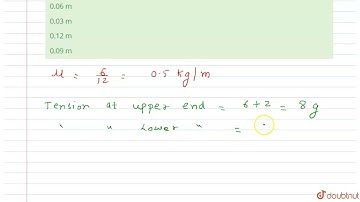 0.06 m
0.03 m
0.12 m
0.09 m
μ = 6/12 = 0.5 kg/m
Tension at upper end = 6+2 = 8 g
" " Lower " =
doubtnut